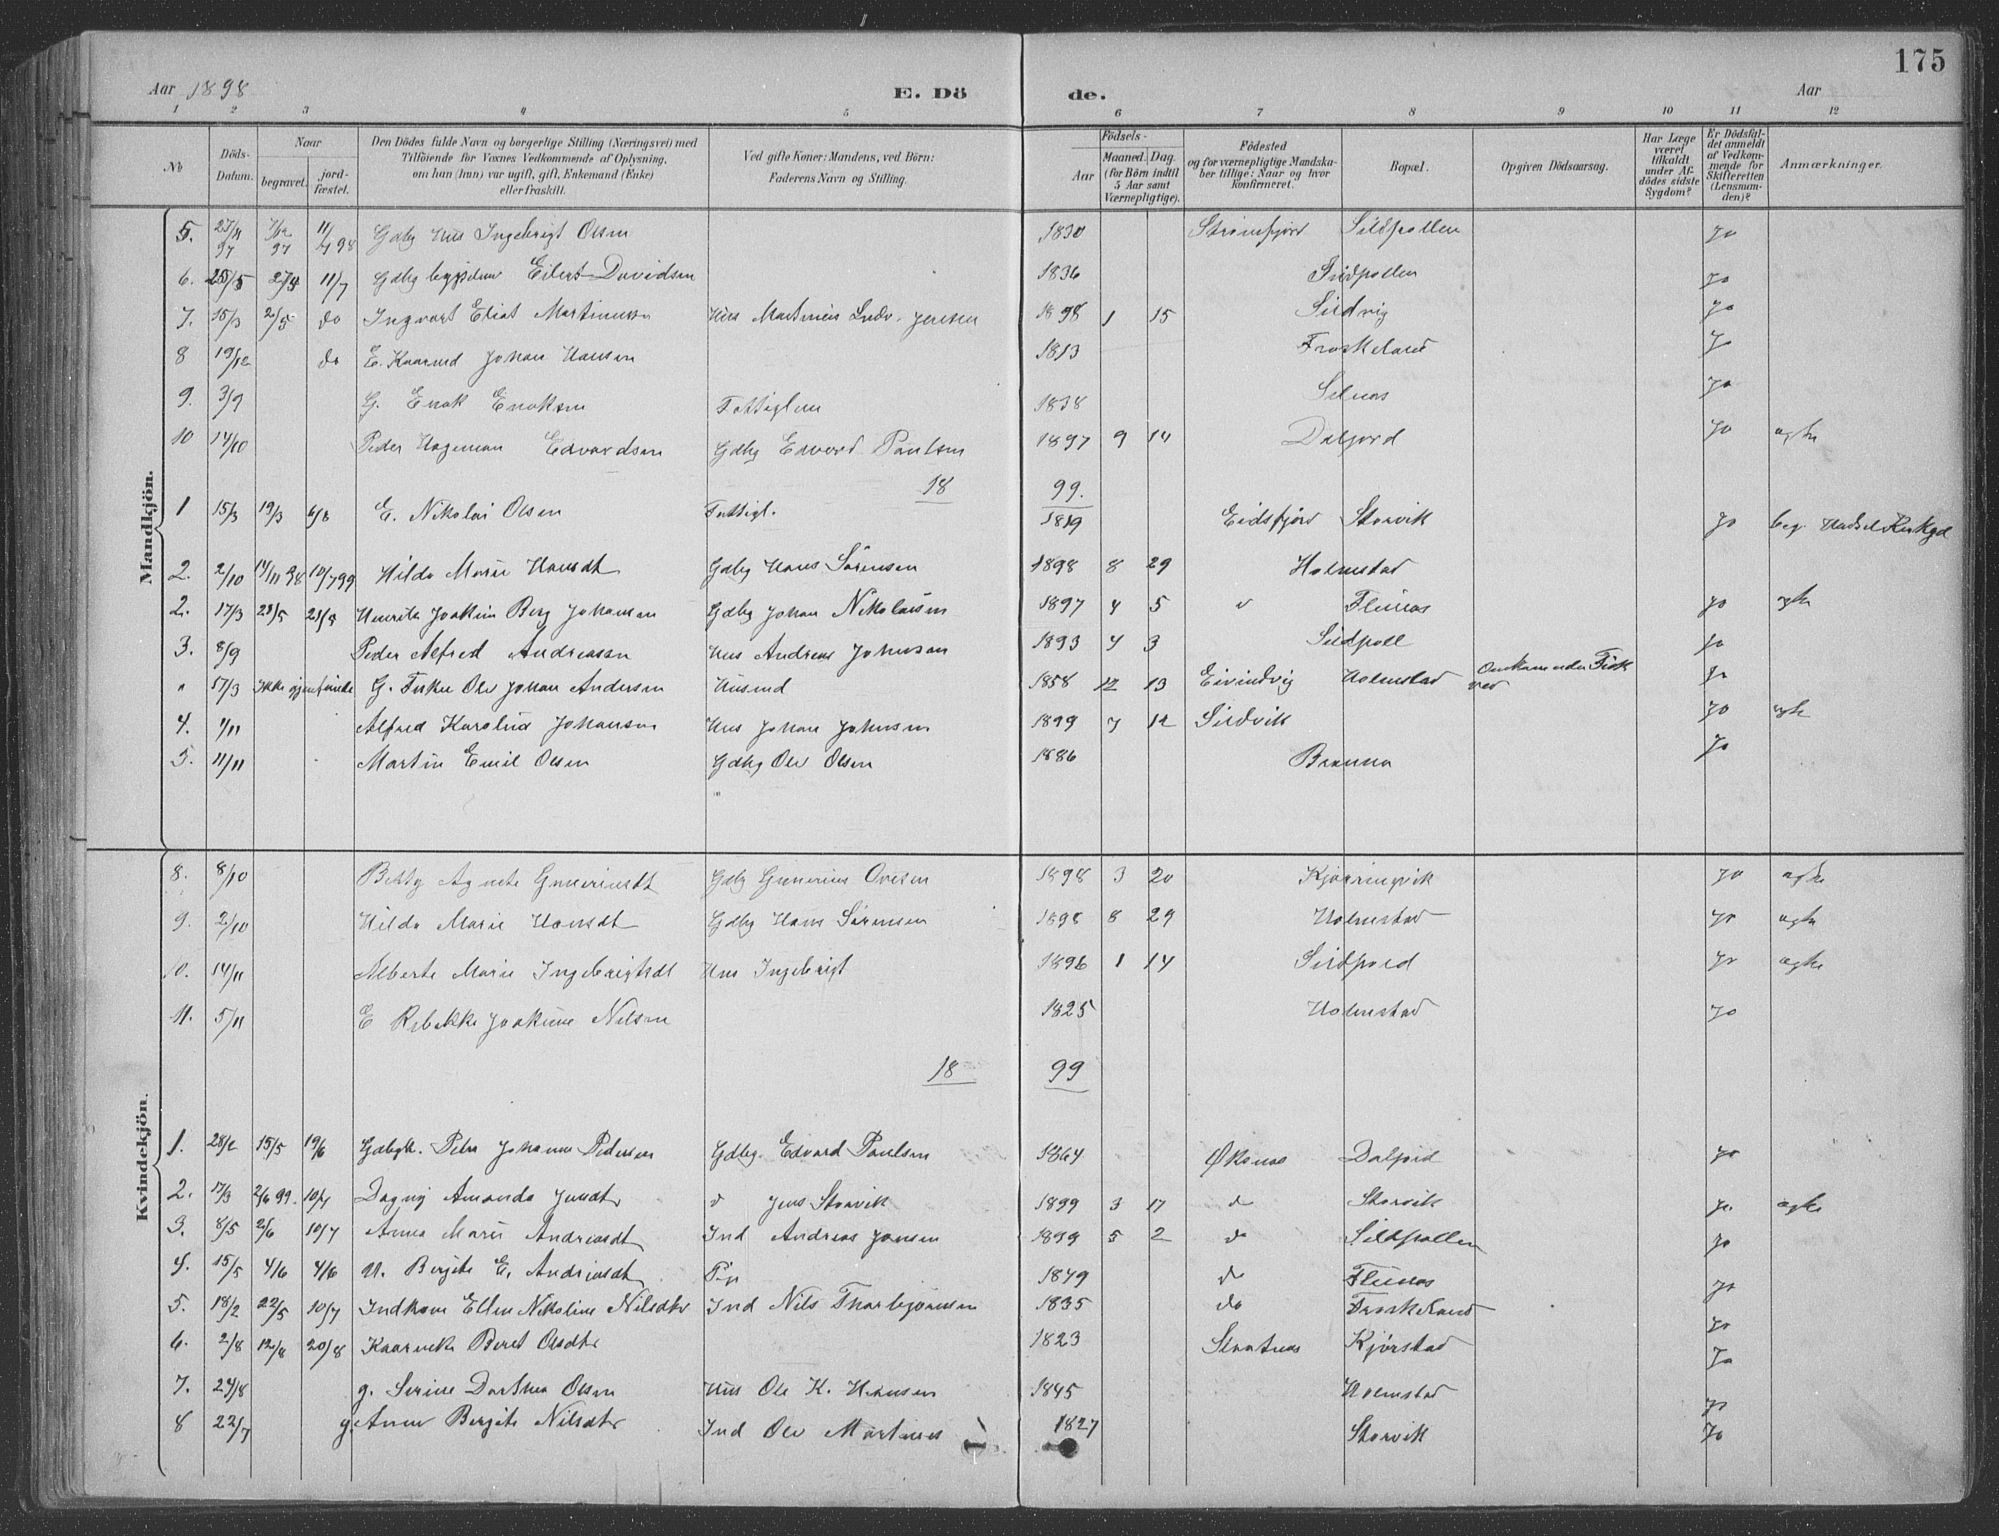 175
Aar 1898 E. Dö de. Aar
1 2 3 4 5 6 7 8 9 10 11 12
No Döds-Datum. Naar begravet. jord-fæstet. Den Dödes fulde Navn og borgerlige Stilling (Næringsvei) med Tilföiende for Voxnes Vedkommende af Oplysning, om han (hun) var ugift, gift, Enkemand (Enke) eller fraskilt. Ved gifte Koner: Mandens, ved Börn: Faderens Navn og Stilling. Födsels- Aar Maaned. Dag. (for Börn indtil 5 Aar samt Værnepligtige). Födested og for værnepligtige Mandska-ber tillige: Naar og hvor konfirmeret. Bopæl. Opgiven Dödsaarsag. Har Læge været tilkaldt under Af-dödes sidste Sygdom? Er Dödsfal-det anmeldt af Vedkom-mende for Skifteretten (Lensman-den)? Anmærkninger.
Mandkjön.
5. 97 97 11/7 98 Gdbg Hus Ingebrigt Olsen 1830 Strømfjord Sildpollen Jo
6. 25/5 11/7 Gdbg Eilert Davidsen 1836 Sildpollen Jo
7. 15/3 2/5 do Ingvart Eliat Martinussen Hus Martinus Ludv. Jensen 1898 1 15 Sildvig Jo
8 19/12 do E. Kaarmd Johan Hansen 1813 Froskeland Jo
9. 3/9 G. Enok Enoksen Fattiglem 1838 Silnas Jo
10 14/10 Peder Hageman Edvardsen Gdbg Edvard Paulsen 1897 9 14 Dalfjord Jo agte
18 99.
1 15/3 19/3 6/8 E. Nikolai Olsen Fattigl. 1819 Eidsfjord Storvik Jo beg. Hadsel Kirkgd
2. 2/10 14/11 98 10/7 99 Hilda Marie Hansdt Gdbg Hans Sørensen 1898 8 29 Holmstad
2. 17/3 23/5 Henrik Joakim Berg Johansen Gdbg Johan Nikolaisen 1897 4 5 Flinas Jo agte
3. 8/9 Peder Alfred Andreassen Hus Andreas Johnsen 1893 4 3 Sildpoll Jo
" 17/3 Ikke igjenfunde G. Fisker Ole Johan Andersen Husmd 1858 12 13 Eivindvig Holmstad Omkom under Fisk Jo
4. 1/11 Alfred Karolius Johansen Hus Johan Johnsen 1899 7 12 Sildvik Jo agte
5. 11/11 Martin Emil Olsen Gdbg Ole Olsen 1886 Jo
Kvindekjön.
8. 8/10 Betty Agnete Guneriusdt Gdbg Gunerius Ovesen 1898 3 20 Kjørringvik Jo agte
9. 2/10 Hilda Marie Hansdt Gdbg Hans Sørensen 1898 8 29 Holmstad Jo agte
10. 14/11 Alberte Marie Ingebrigtsdt Hus Ingebrigt 1896 1 14 Jo agte
11. 5/11 E Rebekke Joakime Nilsen 1825 Holmstad Jo
18 99
1. 28/2 15/5 19/6 Petra Johanna Pedersen Gdbg. Edvard Paulsen 1864 Øksnes Jo
2. 17/3 2/6 99. 10/7 Dagny Amanda Jensdt Jens Storvik 1899 3 17 do Storvik Jo agte
3. 8/5 2/6 10/7 Anna Marie Andreasdt Ind Andreas Jensen 1899 5 2 do Sildpollen Jo
4. 15/5 4/6 4/6 U. Bergite E. Andreasdt Pige 1849 do Flinas Jo
5. 18/2 22/5 10/7 Indkone Ellen Nikoline Nilsdtr Ind Nils Thorbjørnsen 1835 do Froskeland Jo
6. 2/8 12/8 20/8 Beret Olsdtr 1823 Kjørstad Jo
7. 24/8 g. Serine Dorthea Olsen Hus Ole K. Hansen 1845 Holmstad Jo
8 22/7 g. Anna Bergite Nilsdtr Ind Ole Martinus 1827 Storvik Jo